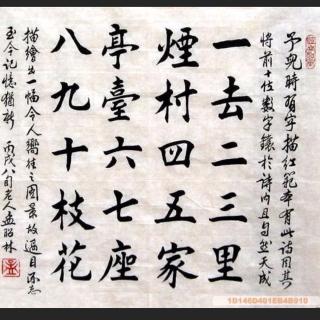 予兒時習字描紅範本有此詩因其
將前十位數字鑲於詩内且自然天成
一去二三里
煙村四五家
亭臺六七座
八九十枝花
描繪出一幅令人嚮往之圖景故過目不忘
至今記憶猶新 丙戌八旬老人孟昭林
1D146D401EB4B910